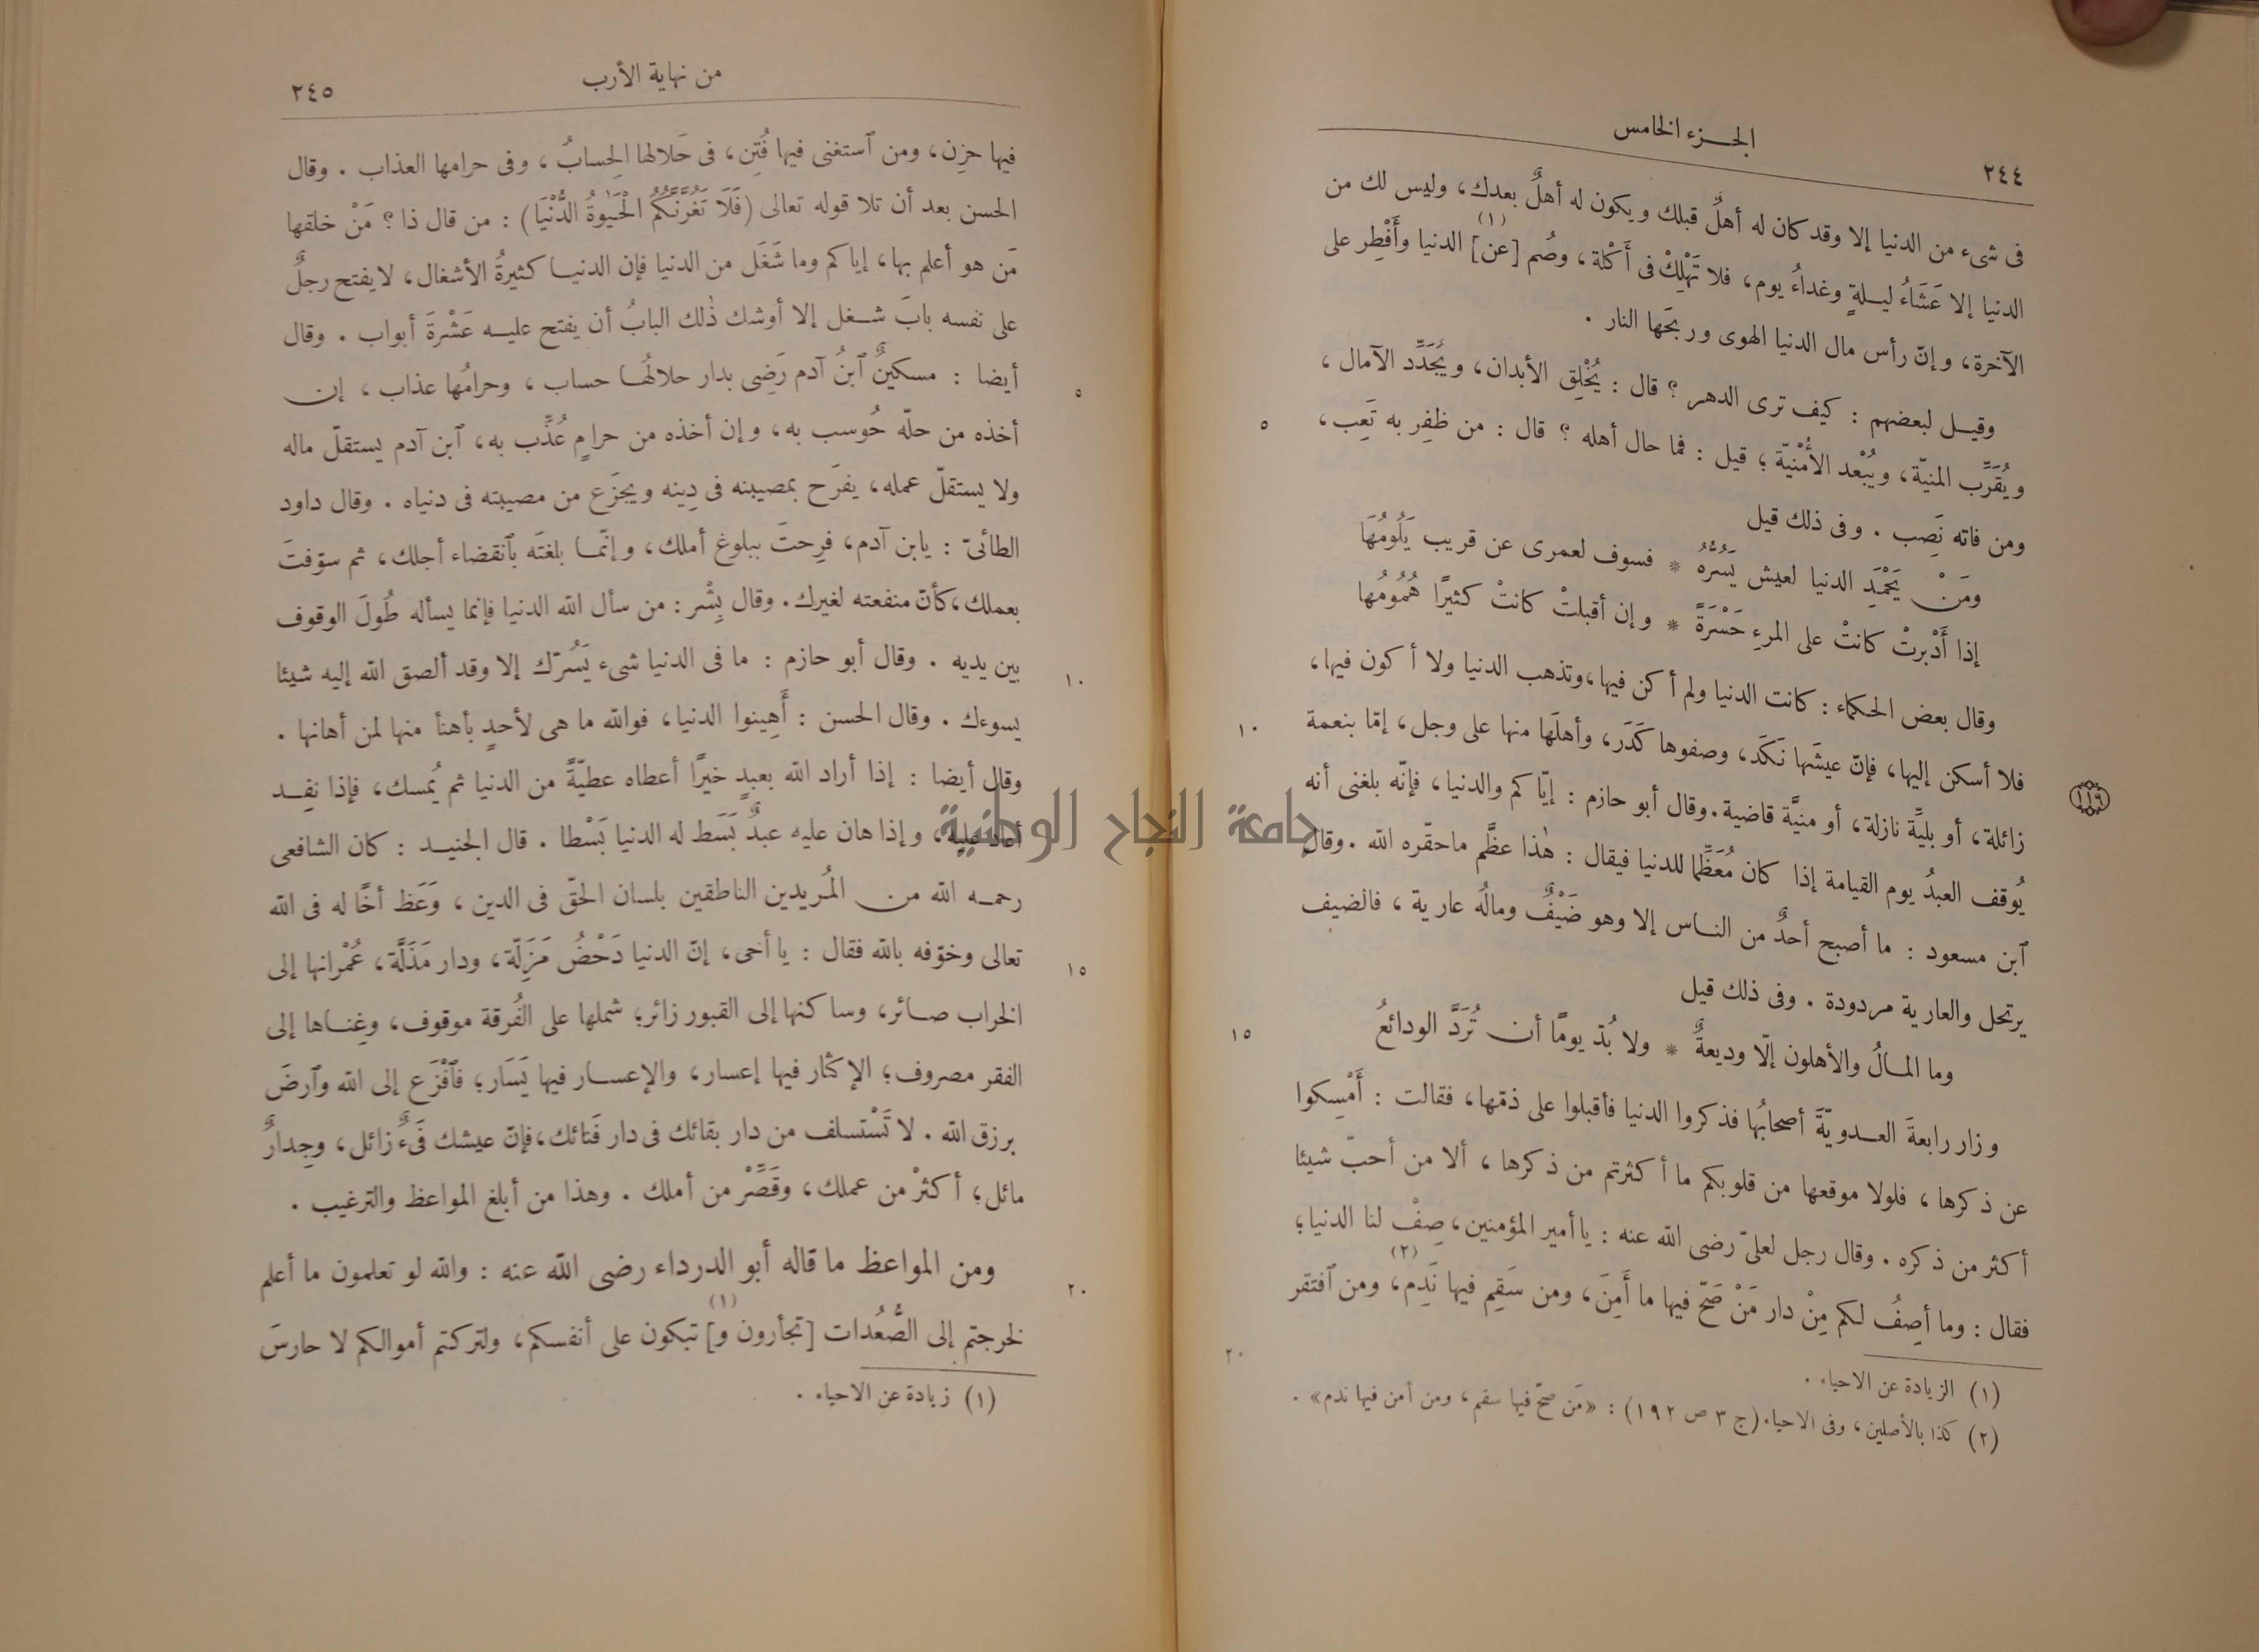 ٢٤٤
الجزء الخامس
فى شىء من الدنيا إلا وقد كان له أهلٌ قبلك ويكون له أهلٌ بعدك، وليس لك من
الدنيا إلا عَشَاءُ ليلةٍ وغداءُ يوم، فلا تَهْلِكْ فى أَكْلة، وصُم [عن] (١) الدنيا وأَفْطِر على
الآخرة، وإنّ رأس مال الدنيا الهوى وربحَها النار .
وقيل لبعضهم : كيف ترى الدهر؟ قال : يُخْلِق الأبدان، ويُجَدِّد الآمال،
ويُقَرِّب المنيّة، ويُبْعد الأُمْنيّة؛ قيل : فما حال أهله؟ قال : من ظفِر به تَعِب،
٥
ومن فاته نَصِب . وفى ذلك قيل
ومَنْ يَحْمَدِ الدنيا لعيش يَسُرُّهُ * فسوف لعمرى عن قريب يَلُومُهَا
إذا أَدْبرتْ كانتْ على المرءِ حَسْرَةً * وإن أقبلتْ كانتْ كثيرًا هُمُومُها
وقال بعض الحكماء : كانت الدنيا ولم أكن فيها، وتذهب الدنيا ولا أكون فيها،
فلا أسكن إليها، فإنّ عيشَها نَكَد، وصفوها كَدَر، وأهلَها منها على وجل، إمّا بنعمة
١٠
زائلة، أو بليِّة نازلة، أو منيَّة قاضية. وقال أبو حازم : إيّاكم والدنيا، فإنّه بلغنى أنه
١١٩
يُوقف العبدُ يوم القيامة إذا كان مُعَظِّما للدنيا فيقال : هٰذا عظَّم ما حقّره الله . وقال
ٱبن مسعود : ما أصبح أحدٌ من الناس إلا وهو ضَيْفٌ ومالُه عارية، فالضيف
يرتحل والعارية مردودة . وفى ذلك قيل
وما المالُ والأهلون إلّا وديعةٌ * ولا بُدّ يومًا أن تُرَدَّ الودائعُ
١٥
وزار رابعةَ العدويّةَ أصحابُها فذكروا الدنيا فأقبلوا على ذمّها، فقالت : أَمْسِكوا
عن ذكرها، فلولا موقعها من قلوبكم ما أكثرتم من ذكرها، ألا من أحبّ شيئا
أكثر من ذكره . وقال رجل لعلىّ رضى الله عنه : يا أمير المؤمنين، صِفْ لنا الدنيا؛
فقال : وما أصِفُ لكم مِنْ دار مَنْ صَحّ فيها ما أَمِنَ، ومن سَقِم فيها نَدِم (٢)، ومن ٱفتقر
٢٠
(١) الزيادة عن الاحياء .
(٢) كذا بالأصلين، وفى الاحياء (ج ٣ ص ١٩٢) : «مَن صحّ فيها سقم، ومن أمن فيها ندم» .
من نهاية الأرب
٢٤٥
فيها حزِن، ومن ٱستغنى فيها فُتِن، فى حَلالها الِحسابُ، وفى حرامها العذاب . وقال
الحسن بعد أن تلا قوله تعالى (فَلَا تَغُرَّنَّكُمُ الْحَيَوٰةُ الدُّنْيَا) : من قال ذا؟ مَنْ خلقها
مَن هو أعلم بها، إياكم وما شَغَل من الدنيا فإن الدنيا كثيرةُ الأشغال، لا يفتح رجلٌ
على نفسه بابَ شغل إلا أوشك ذٰلك البابُ أن يفتح عليه عَشْرةَ أبواب . وقال
أيضا : مسكينٌ ٱبنُ آدم رَضِى بدار حلالُها حساب، وحرامُها عذاب، إن
٥
أخذه من حلّه حُوسب به، وإن أخذه من حرامٍ عُذّب به، ٱبن آدم يستقلّ ماله
ولا يستقلّ عمله، يفرَح بمصيبته فى دِينه ويجزَع من مصيبته فى دنياه . وقال داود
الطائىّ : يابن آدم، فرِحتَ ببلوغ أملك، وإنّما بلغتَه بٱنقضاء أجلك، ثم سوّفتَ
بعملك، كأنّ منفعته لغيرك. وقال بِشْر : من سأل الله الدنيا فإنما يسأله طُولَ الوقوف
بين يديه . وقال أبو حازم : ما فى الدنيا شىء يَسُرّك إلا وقد ألصق الله إليه شيئا
١٠
يسوءك . وقال الحسن : أَهِينوا الدنيا، فوالله ما هى لأحدٍ بأهنأ منها لمن أهانها .
وقال أيضا : إذا أراد الله بعبدٍ خيرًا أعطاه عطيّةً من الدنيا ثم يُمسك، فإذا نفِد
أعاد عليه، وإذا هان عليه عبدٌ بَسَط له الدنيا بَسْطا . قال الجنيد : كان الشافعى
رحمه الله من المُريدين الناطقين بلسان الحقّ فى الدين، وَعَظ أخًا له فى الله
تعالى وخوّفه بالله فقال : يا أخى، إنّ الدنيا دَحْضُ مَزَلّة، ودار مَذَلَّة، عُمْرانها إلى
١٥
الخراب صائر، وساكنها إلى القبور زائر؛ شملها على الفُرقة موقوف، وغِناها إلى
الفقر مصروف؛ الإكثار فيها إعسار، والإعسار فيها يَسَار؛ فٱفْزَع إلى الله وٱرضَ
برزق الله . لا تَسْتسلف من دار بقائك فى دار فَنائك، فإنّ عيشك فَىْءٌ زائل، وجِدارٌ
مائل؛ أكثرْ من عملك، وقَصِّرْ من أملك . وهذا من أبلغ المواعظ والترغيب .
ومن المواعظ ما قاله أبو الدرداء رضى الله عنه : والله لو تعلمون ما أعلم
٢٠
لخرجتم إلى الصُّعُدات [تجأرون و] (١) تبكون على أنفسكم، ولتركتم أموالكم لا حارسَ
(١) زيادة عن الاحياء .
جامعة النجاح الوطنية